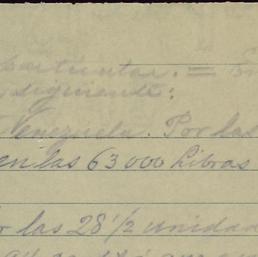 particular. =
siguiente:
Venezuela. Por las
en las 63000 Libras
las 28 1/2 unidad